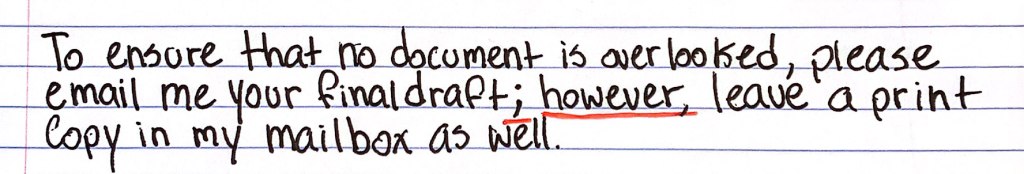 To ensure that no document is overlooked, please
email me your final draft; however, leave a print
copy in my mailbox as well.